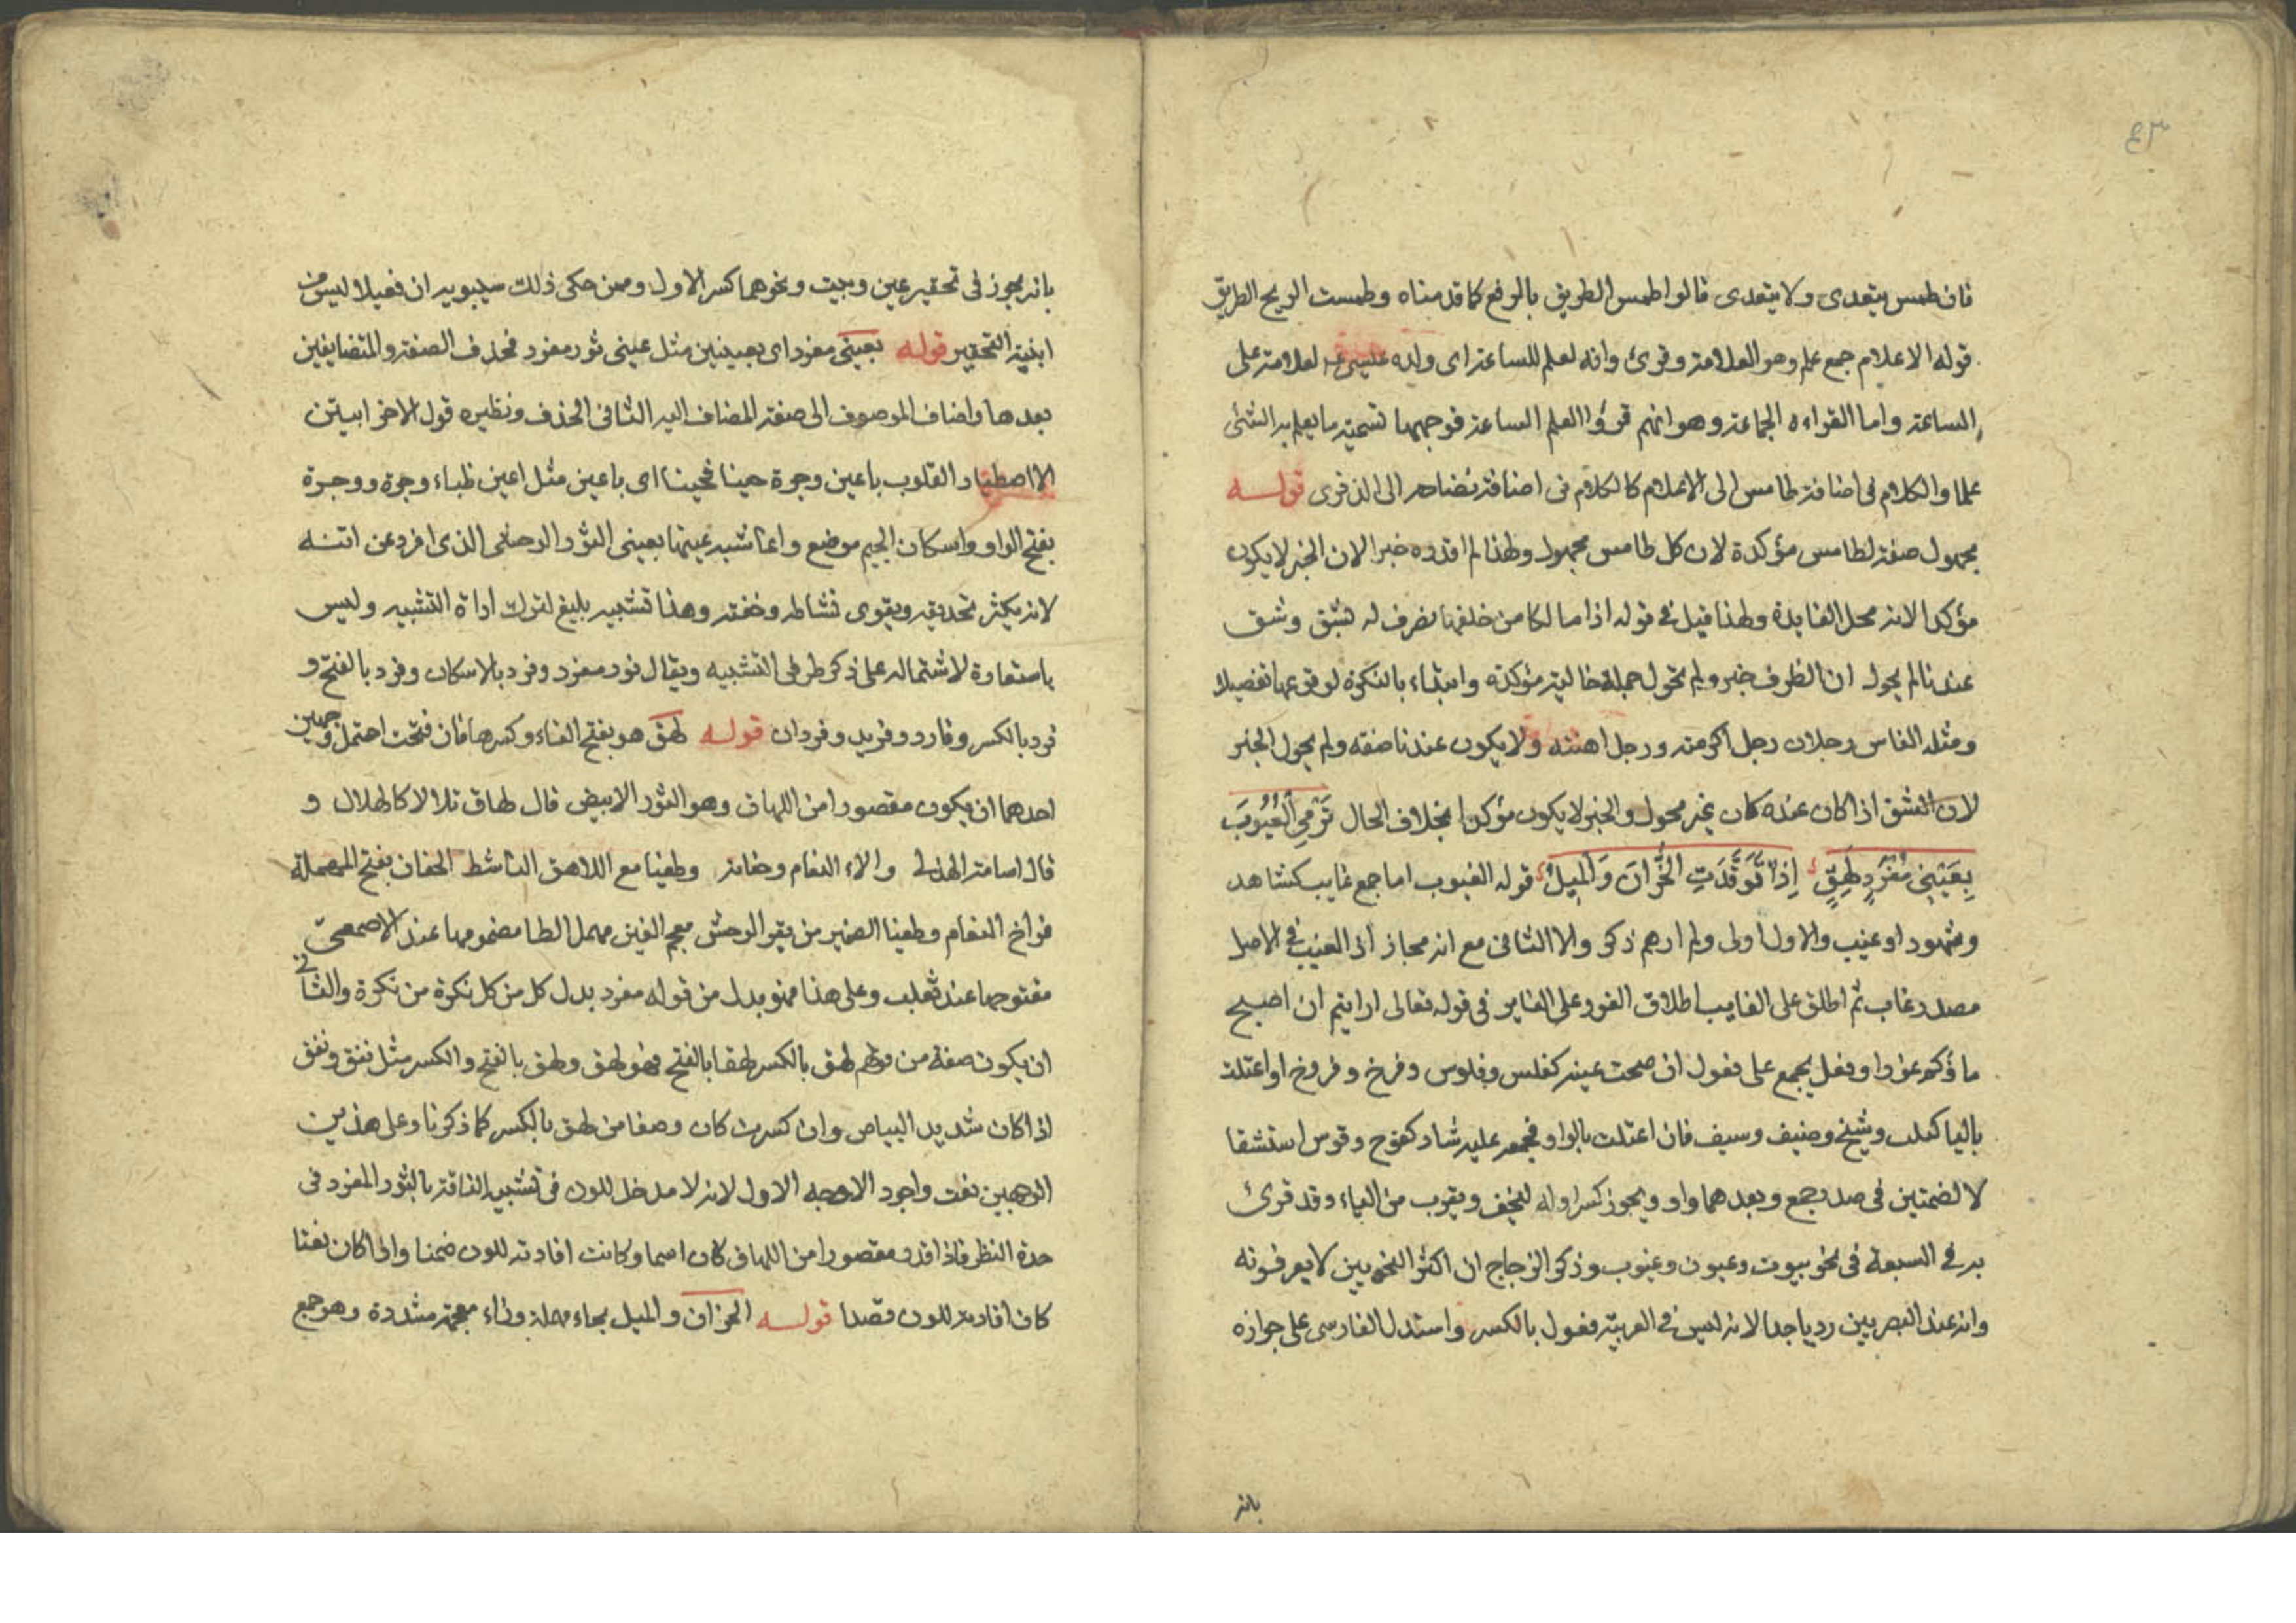 ٤٣
فان طمس يتعدى ولا يتعدى قالوا طمس الطريق بالرفع كما قدمناه وطمست الريح الطريق
قوله الاعلام جمع علم وهو العلامة وقرئ وانه لعلم للساعة اى وانه عيسى لعلامة على
الساعة واما القراءه الجماعة وهو انهم قرؤا لعلم الساعة فوجهها تسمية ما يعلم به الشئ
علما والكلام فى اضافة طامس الى الاعلام كالكلام فى اضافة نضاحه الى الذفرى قوله
مجهول صفة لطامس مؤكدة لان كل طامس مجهول ولهذا لم اقدره خبرا لان الخبر لا يكون
مؤكدا لانه محل الفايدة ولهذا قيل فى قوله اذا ما بكا من خلفها انصرف له بشق وشق
عندنا لم يحول ان الظرف خبر ولم يحول جملة حالية مؤكدة وابتداء بالنكرة لوقوعها تفصيلا
ومثله الناس رجلان رجل اكرمته ورجل اهنته ولا يكون عندنا صفه ولم يحول الخبر
لان الشق اذا كان عنده كان غير محول والخبر لا يكون مؤكدا بخلاف الحال تَرْمِى الْغُيُوبَ
بِعَيْنَىْ مُفْرَدٍ لَهِقٍ إِذَا تَوَقَّدَتِ الْحُزَّانُ وَالْمِيلُ قوله الغيوب اما جمع غايب كشاهد
وشهود او غيب والاول اولى ولم ارهم ذكروا الا الثانى مع انه مجاز اذ الغيب فى الاصل
مصدر غاب ثم اطلق على الغايب اطلاق الغور على الغاير فى قوله تعالى ارايتم ان اصبح
ماؤكم غورا وفعل يجمع على فعول ان صحت عينه كفلس وفلوس وفرخ وفروخ او اعتلت
باليا كبيت وشيخ وضيف وسيف فان اعتلت بالواو فجمعه عليه شاذ كفوج وقوس استثقا
لا لضمتين فى صدر جمع وبعدهما واو ويجوز كسر اوله ليخف ويقرب من الياء وقد قرئ
به فى السبعة فى نحو بيوت وعيون وغيوب وذكر الزجاج ان اكثر النحويين لا يعرفونه
وانه عند البصريين رديا جدا لانه ليس فى العربية فعول بالكسر واستدل الفارسى على جوازه
بانه
بانه يجوز فى تحقير عين وبيت ونحوهما كسر الاول وممن حكى ذلك سيبويه ان فعيلا ليس من
ابنية التحقير قوله بعينى مفرد اى بعينين مثل عينى ثور مفرد فحذف الصفة والمتضايفين
بعدها واضاف الموصوف الى صفة المضاف اليه الثانى الحذف ونظيره قول الاخر ابيتن
الا اصطياد القلوب باعين وجرة حينا فحينا اى باعين مثل اعين ظباء وجرة ووجرة
بفتح الواو واسكان الجيم موضع وانما شبه عينها بعينى الثور الوحشى الذى افرد عن انثه
لانه يكثر تحديقه ويقوى نشاطه وخفته وهذا تشبيه بليغ لترك اداة التشبيه وليس
باستعارة لاشتماله على ذكر طرفى التشبيه ويقال نور مفرد وفرد بالاسكان وفرد بالفتح و
فرد بالكسر وفارد وفريد وفردان قوله لهق هو بفتح الهاء وكسرها فان فتحت احتمل وجهين
احدهما ان يكون مقصورا من اللهاق وهو الثور الابيض قال لهاق تلالا كالهلال و
قال اسامة الهذلى والاء النعام وحفانه وطغيا مع اللاهق الناشط الحفان بفتح المهملة
فراخ النعام وطغيا الصغير من بقر الوحش معجم الغين مهمل الطا مضمومها عند الاصمعى
مفتوحها عند ثعلب وعلى هذا فهو بدل من قوله مفرد بدل كل من كل نكرة من نكرة والثانى
ان يكون صفة من قولهم لهق بالكسر لهقا بالفتح فهو لهق ولهق بالفتح والكسر مثل يقق ويقق
اذا كان شديد البياض وان كسرت كان وصفا من لهق بالكسر كما ذكرنا وعلى هذين
الوجهين نعت واجود الاوجه الاول لانه لا مدخل للون فى تشبيه الناقة بالثور المفرد فى
حدة النظر فاذا قدر مقصورا من اللهاق كان اسما وكانت افادته للون ضمنا واذا كان نعتا
كان افادته للون قصدا قوله الحزان والميل بحاء مهملة وزاء معجمة مشددة وهو جمع